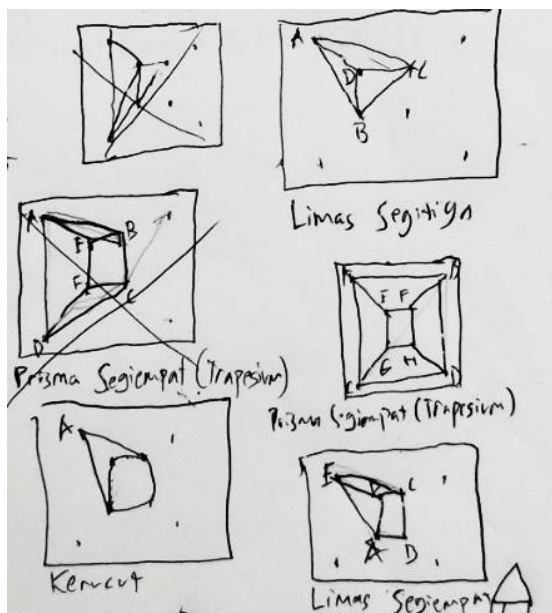 A
D C
B
Limas Segitiga
A
B
E
F
C
D
Prisma Segiempat (Trapesium)
B
E F
G H
C D
Prisma Segiempat (Trapesium)
A
Kerucut
E C
A D
Limas Segiempat